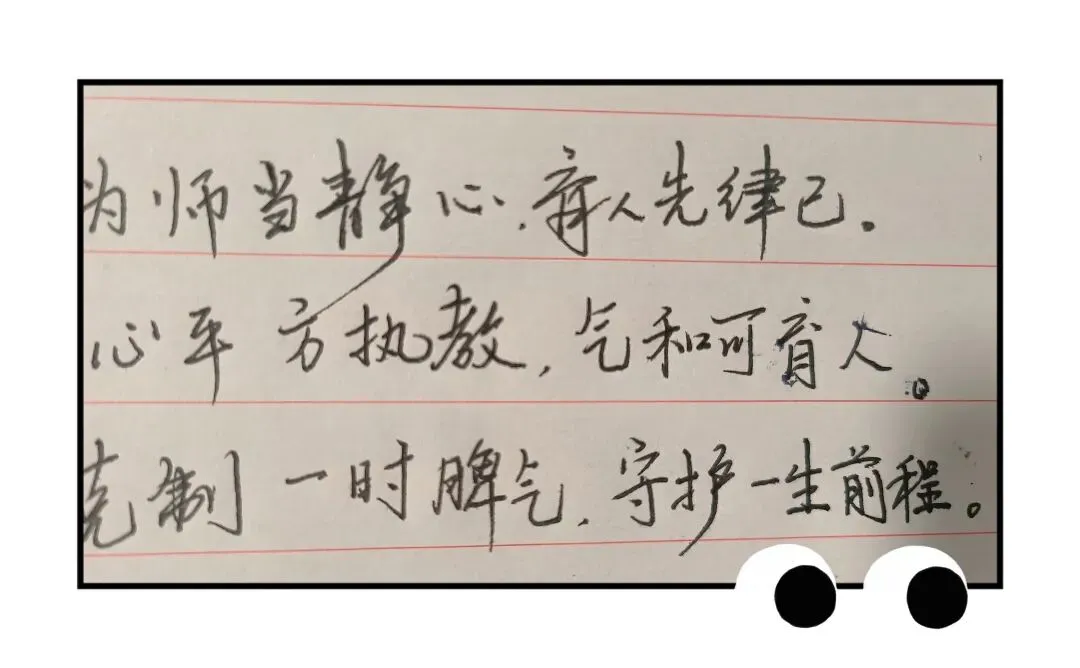 为师当静心,育人先律己。
心平方执教,气和可育人。
克制一时脾气,守护一生前程。